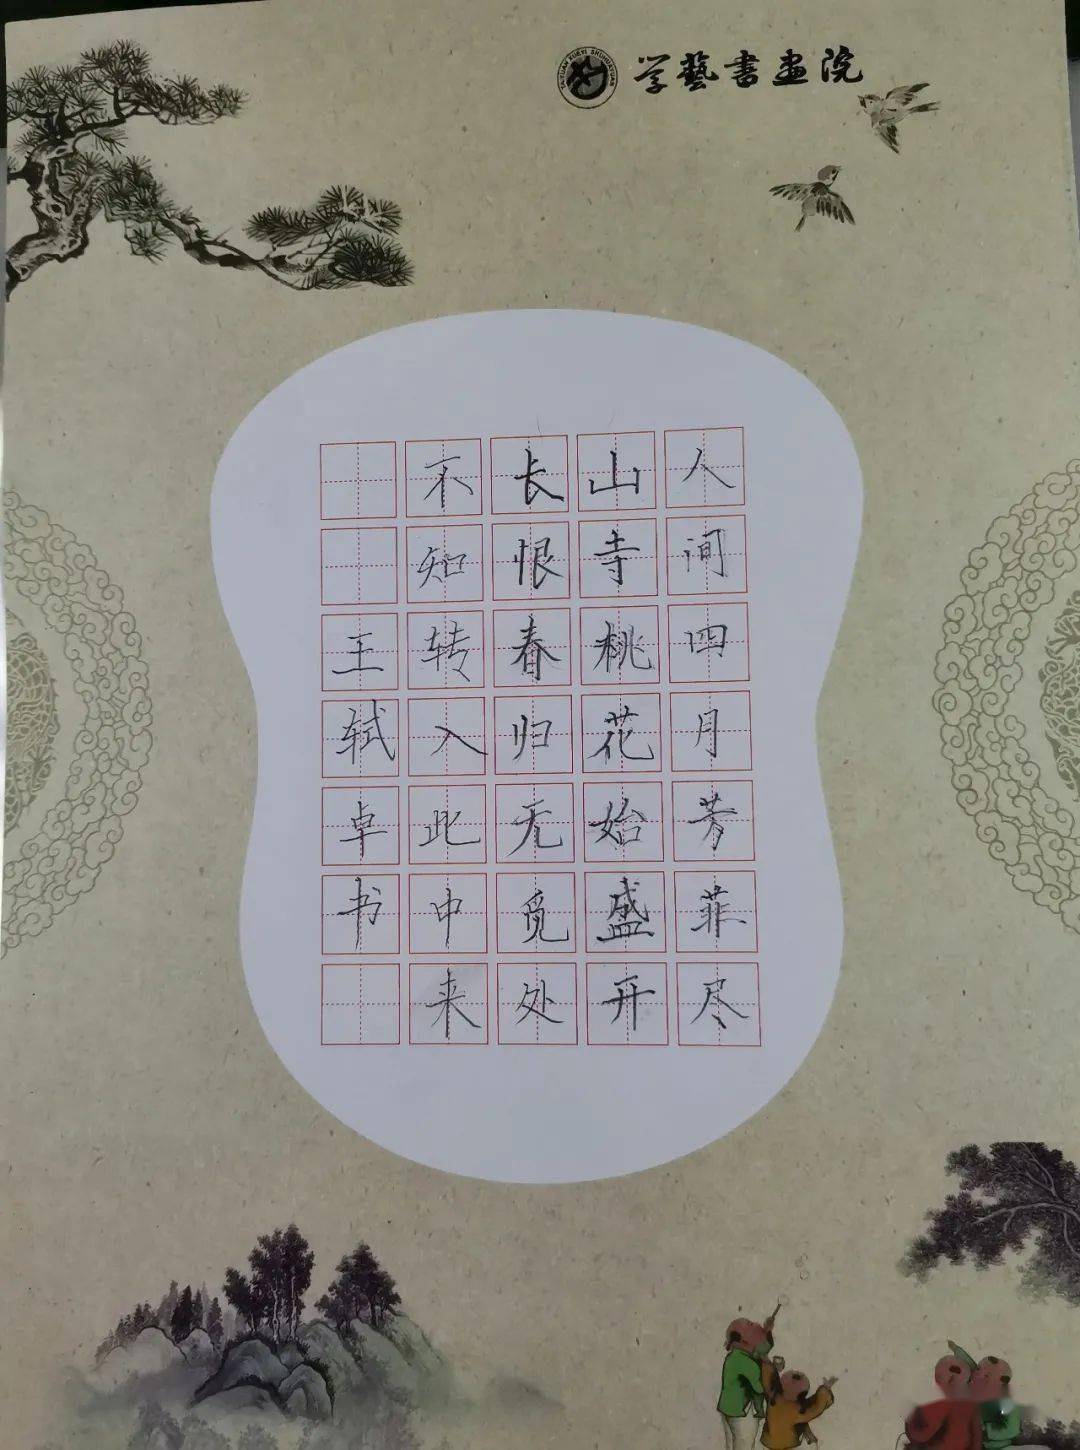 学藝書画院
人间四月芳菲尽
山寺桃花始盛开
长恨春归无觅处
不知转入此中来
王轼卓书